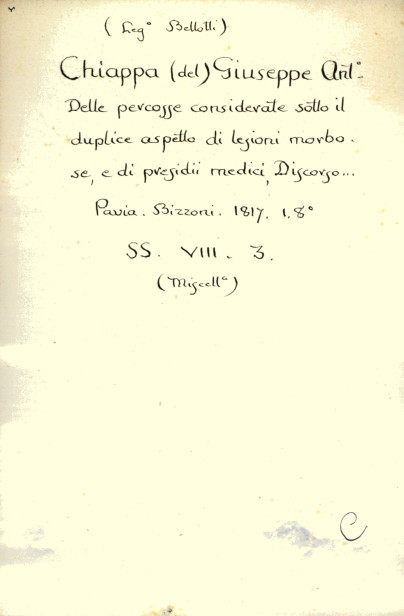 (Leg° Bellotti)
Chiappa (del) Giuseppe Ant°.
Delle percosse considerate sotto il
duplice aspetto di lesioni morbo-
se, e di presidii medici, Discorso...
Pavia. Bizzoni. 1817. 1. 8°
SS. VIII. 3.
(Miscellª)
C